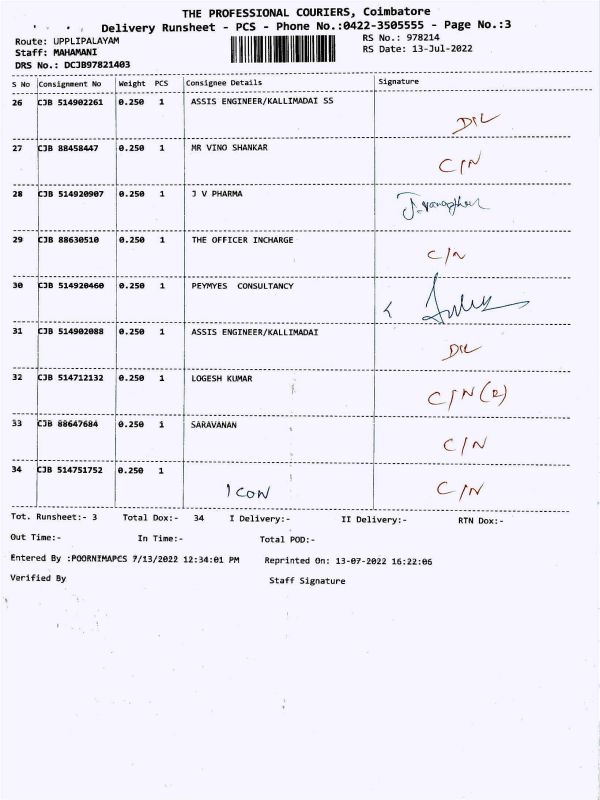 THE PROFESSIONAL COURIERS, Coimbatore
Delivery Runsheet - PCS - Phone No.:0422-3505555 - Page No.:3
Route: UPPLIPALAYAM RS No.: 978214
Staff: MAHAMANI RS Date: 13-Jul-2022
DRS No.: DCJB97821403
S No Consignment No Weight PCS Consignee Details Signature
26 CJB 514902261 0.250 1 ASSIS ENGINEER/KALLIMADAI SS
27 CJB 88458447 0.250 1 MR VINO SHANKAR C/N
28 CJB 514920907 0.250 1 J V PHARMA
29 CJB 88630510 0.250 1 THE OFFICER INCHARGE C/N
30 CJB 514920460 0.250 1 PEYMYES CONSULTANCY
31 CJB 514902088 0.250 1 ASSIS ENGINEER/KALLIMADAI
32 CJB 514712132 0.250 1 LOGESH KUMAR C/N (R)
33 CJB 88647684 0.250 1 SARAVANAN C/N
34 CJB 514751752 0.250 1 ICON C/N
Tot. Runsheet:- 3 Total Dox:- 34 I Delivery:- II Delivery:- RTN Dox:-
Out Time:- In Time:- Total POD:-
Entered By :POORNIMAPCS 7/13/2022 12:34:01 PM Reprinted On: 13-07-2022 16:22:06
Verified By Staff Signature